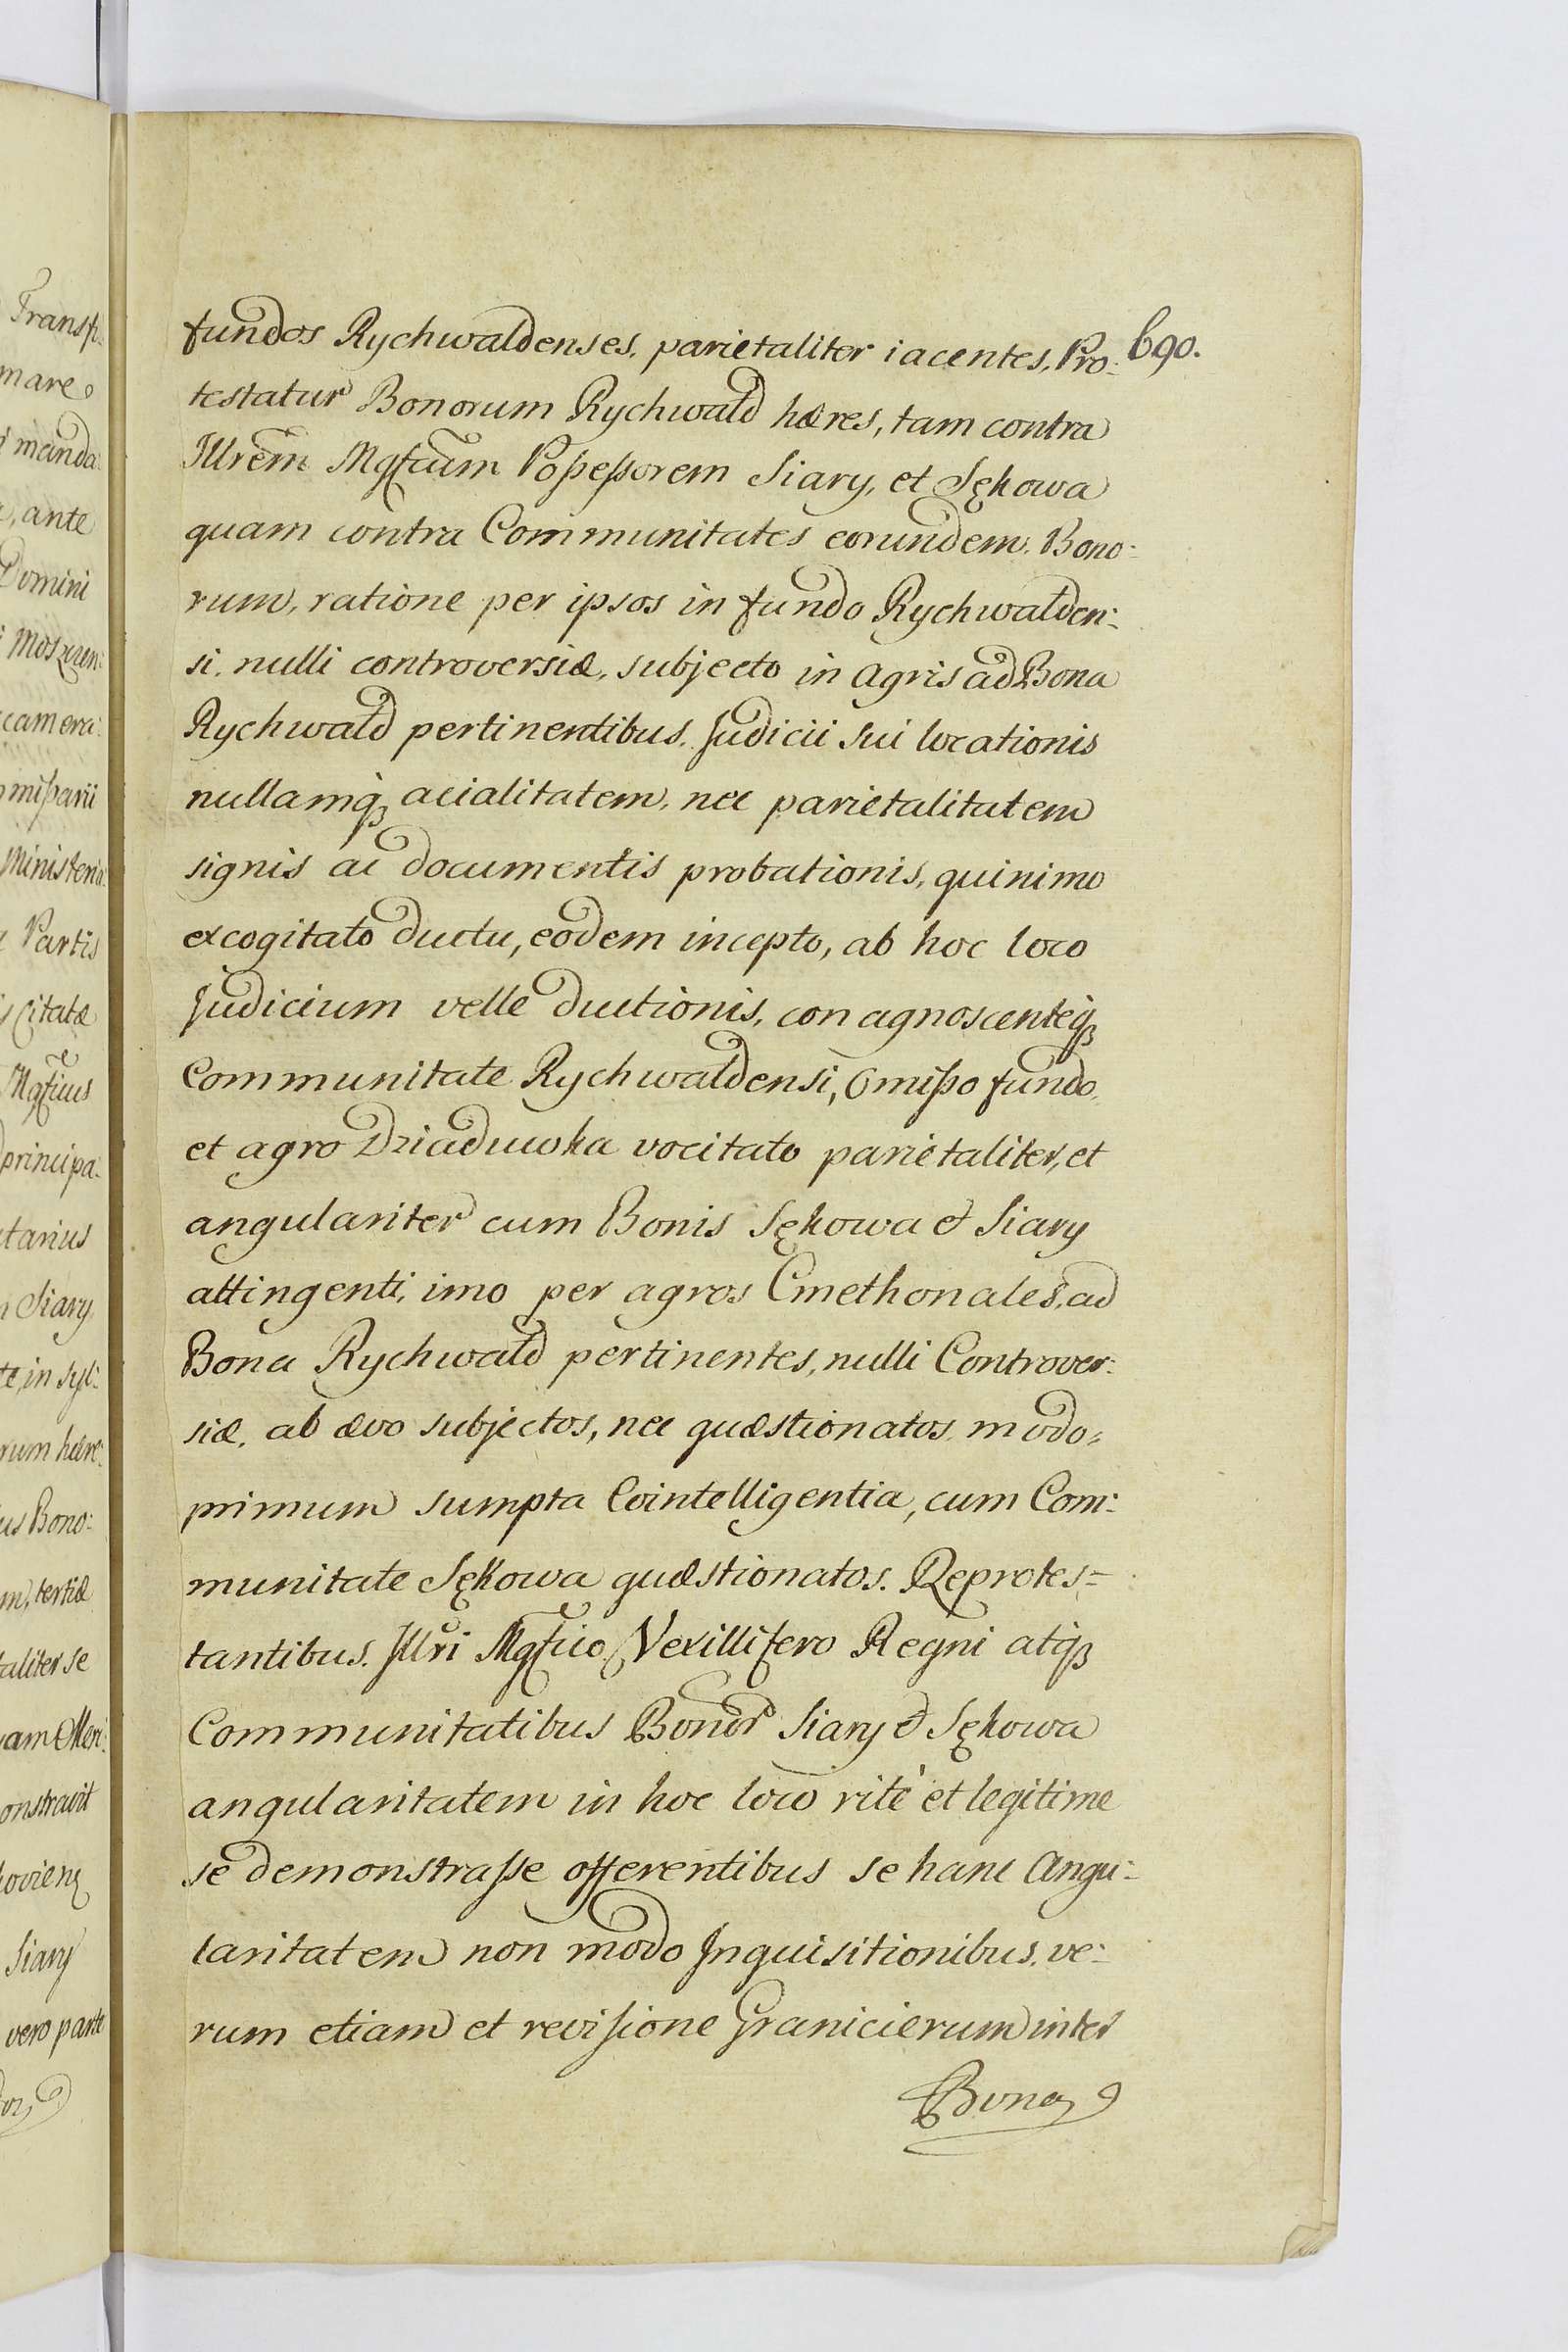 Transp:
mare
mandа:
ante
Domini
Moszczen:
camera:
mißarii
Ministeria:
Partis
Citatæ
Mgficus
principa:
tarius
Siary
te, in syl:
rum hære:
us Bono:
m, tertiæ
taliter se
am Meri:
onstravit
Siary
vero parte
690.
fundos Rychwaldenses, parietaliter iacentes, Pro:
testatur Bonorum Rychwald hæres, tam contra
Illrem Mgficum Poßeßorem Siary, et Sękowa
quam contra Communitates eorundem Bono:
rum, ratione per ipsos in fundo Rychwalden:
si, nulli controversiæ, subjecto in agris ad Bona
Rychwald pertinentibus, Judicii sui locationis
nullamq3 acialitatem, nec parietalitatem
signis ac documentis probationis, quinimo
excogitato ductu, eodem incepto, ab hoc loco
Judicium velle ductionis, con agnoscenteq3
Communitate Rychwaldensi, Omißo fundo,
et agro Dziaduwka vocitato parietaliter, et
angulariter cum Bonis Sękowa et Siary
attingenti, imo per agros Cmethonales, ad
Bona Rychwald pertinentes, nulli Controver:
siæ, ab ævo subjectos, nec quæstionatos, modo=
primum sumpta Cointelligentia, cum Com:
munitate Sękowa quæstionatos. Reprotes=
tantibus. Illri Mgfico Vexillifero Regni atq3
Communitatibus Bonor Siary et Sękowa
angularitatem in hoc loco ritè et legitime
se demonstraße offerentibus se hanc Angu:
laritatem non modo Inquisitionibus, ve:
rum etiam et revisione Granicierum inter
Bona